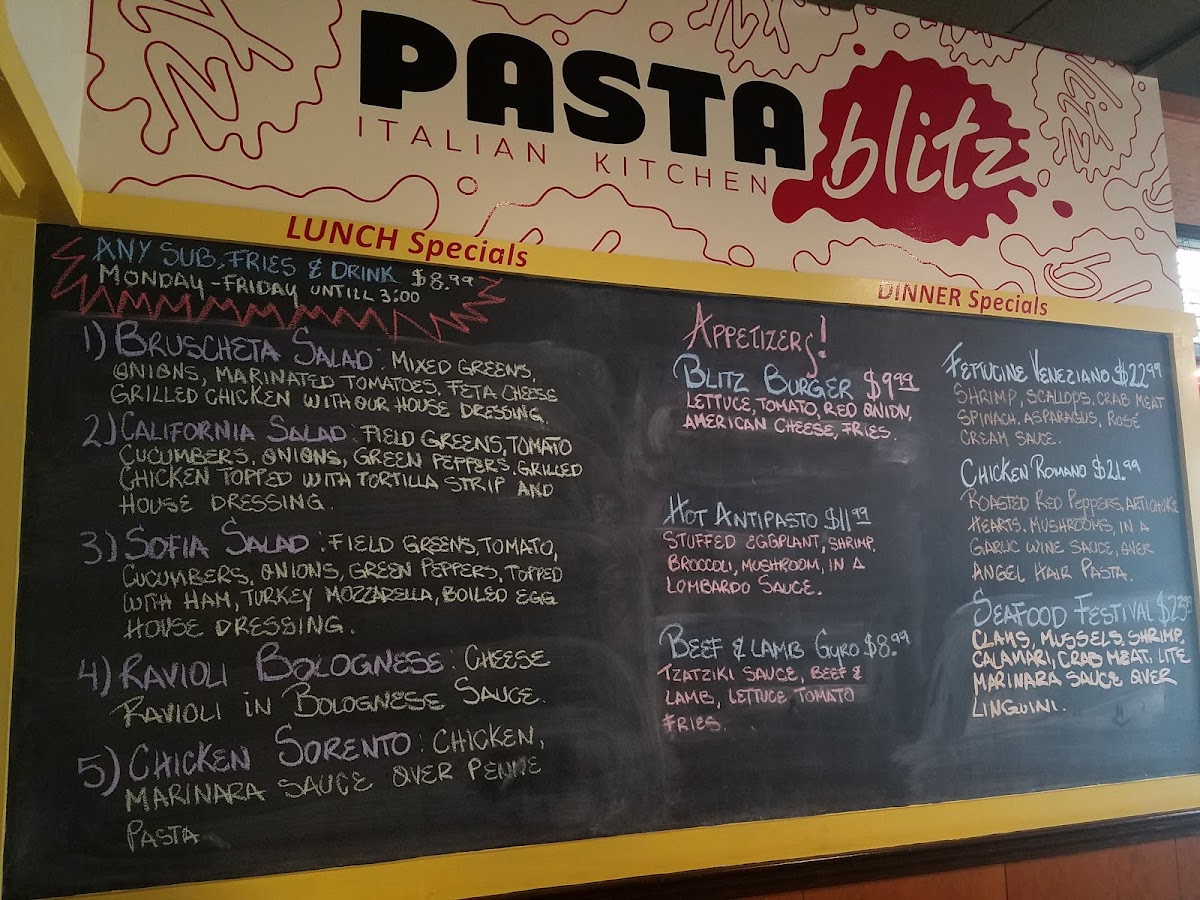 PASTA blitz
ITALIAN KITCHEN
LUNCH Specials
ANY SUB, FRIES & DRINK $8.99
MONDAY-FRIDAY UNTILL 3:00
1) BRUSCHETA SALAD: MIXED GREENS,
ONIONS, MARINATED TOMATOES, FETA CHEESE
GRILLED CHICKEN WITH OUR HOUSE DRESSING.
2) CALIFORNIA SALAD: FIELD GREENS, TOMATO
CUCUMBERS, ONIONS, GREEN PEPPERS. GRILLED
CHICKEN TOPPED WITH TORTILLA STRIP AND
HOUSE DRESSING.
3) SOFIA SALAD: FIELD GREENS, TOMATO,
CUCUMBERS, ONIONS, GREEN PEPPERS, TOPPED
WITH HAM, TURKEY MOZZARELLA, BOILED EGG
HOUSE DRESSING.
4) RAVIOLI BOLOGNESE: CHEESE
RAVIOLI IN BOLOGNESE SAUCE.
5) CHICKEN SORENTO: CHICKEN,
MARINARA SAUCE OVER PENNE
PASTA
DINNER Specials
APPETIZERS!
BLITZ BURGER $9.99
LETTUCE, TOMATO, RED ONION,
AMERICAN CHEESE, FRIES.
HOT ANTIPASTO $11.99
STUFFED EGGPLANT, SHRIMP,
BROCCOLI, MUSHROOM, IN A
LOMBARDO SAUCE.
BEEF & LAMB GYRO $8.99
TZATZIKI SAUCE, BEEF &
LAMB, LETTUCE TOMATO
FRIES.
FETTUCINE VENEZIANO $22.99
SHRIMP, SCALLOPS, CRAB MEAT
SPINACH, ASPARAGUS, ROSÉ
CREAM SAUCE.
CHICKEN ROMANO $21.99
ROASTED RED PEPPERS, ARTICHOKE
HEARTS, MUSHROOMS, IN A
GARLIC WINE SAUCE, OVER
ANGEL HAIR PASTA.
SEAFOOD FESTIVAL
CLAMS, MUSSELS, SHRIMP,
CALAMARI, CRAB MEAT, LITE
MARINARA SAUCE OVER
LINGUINI.